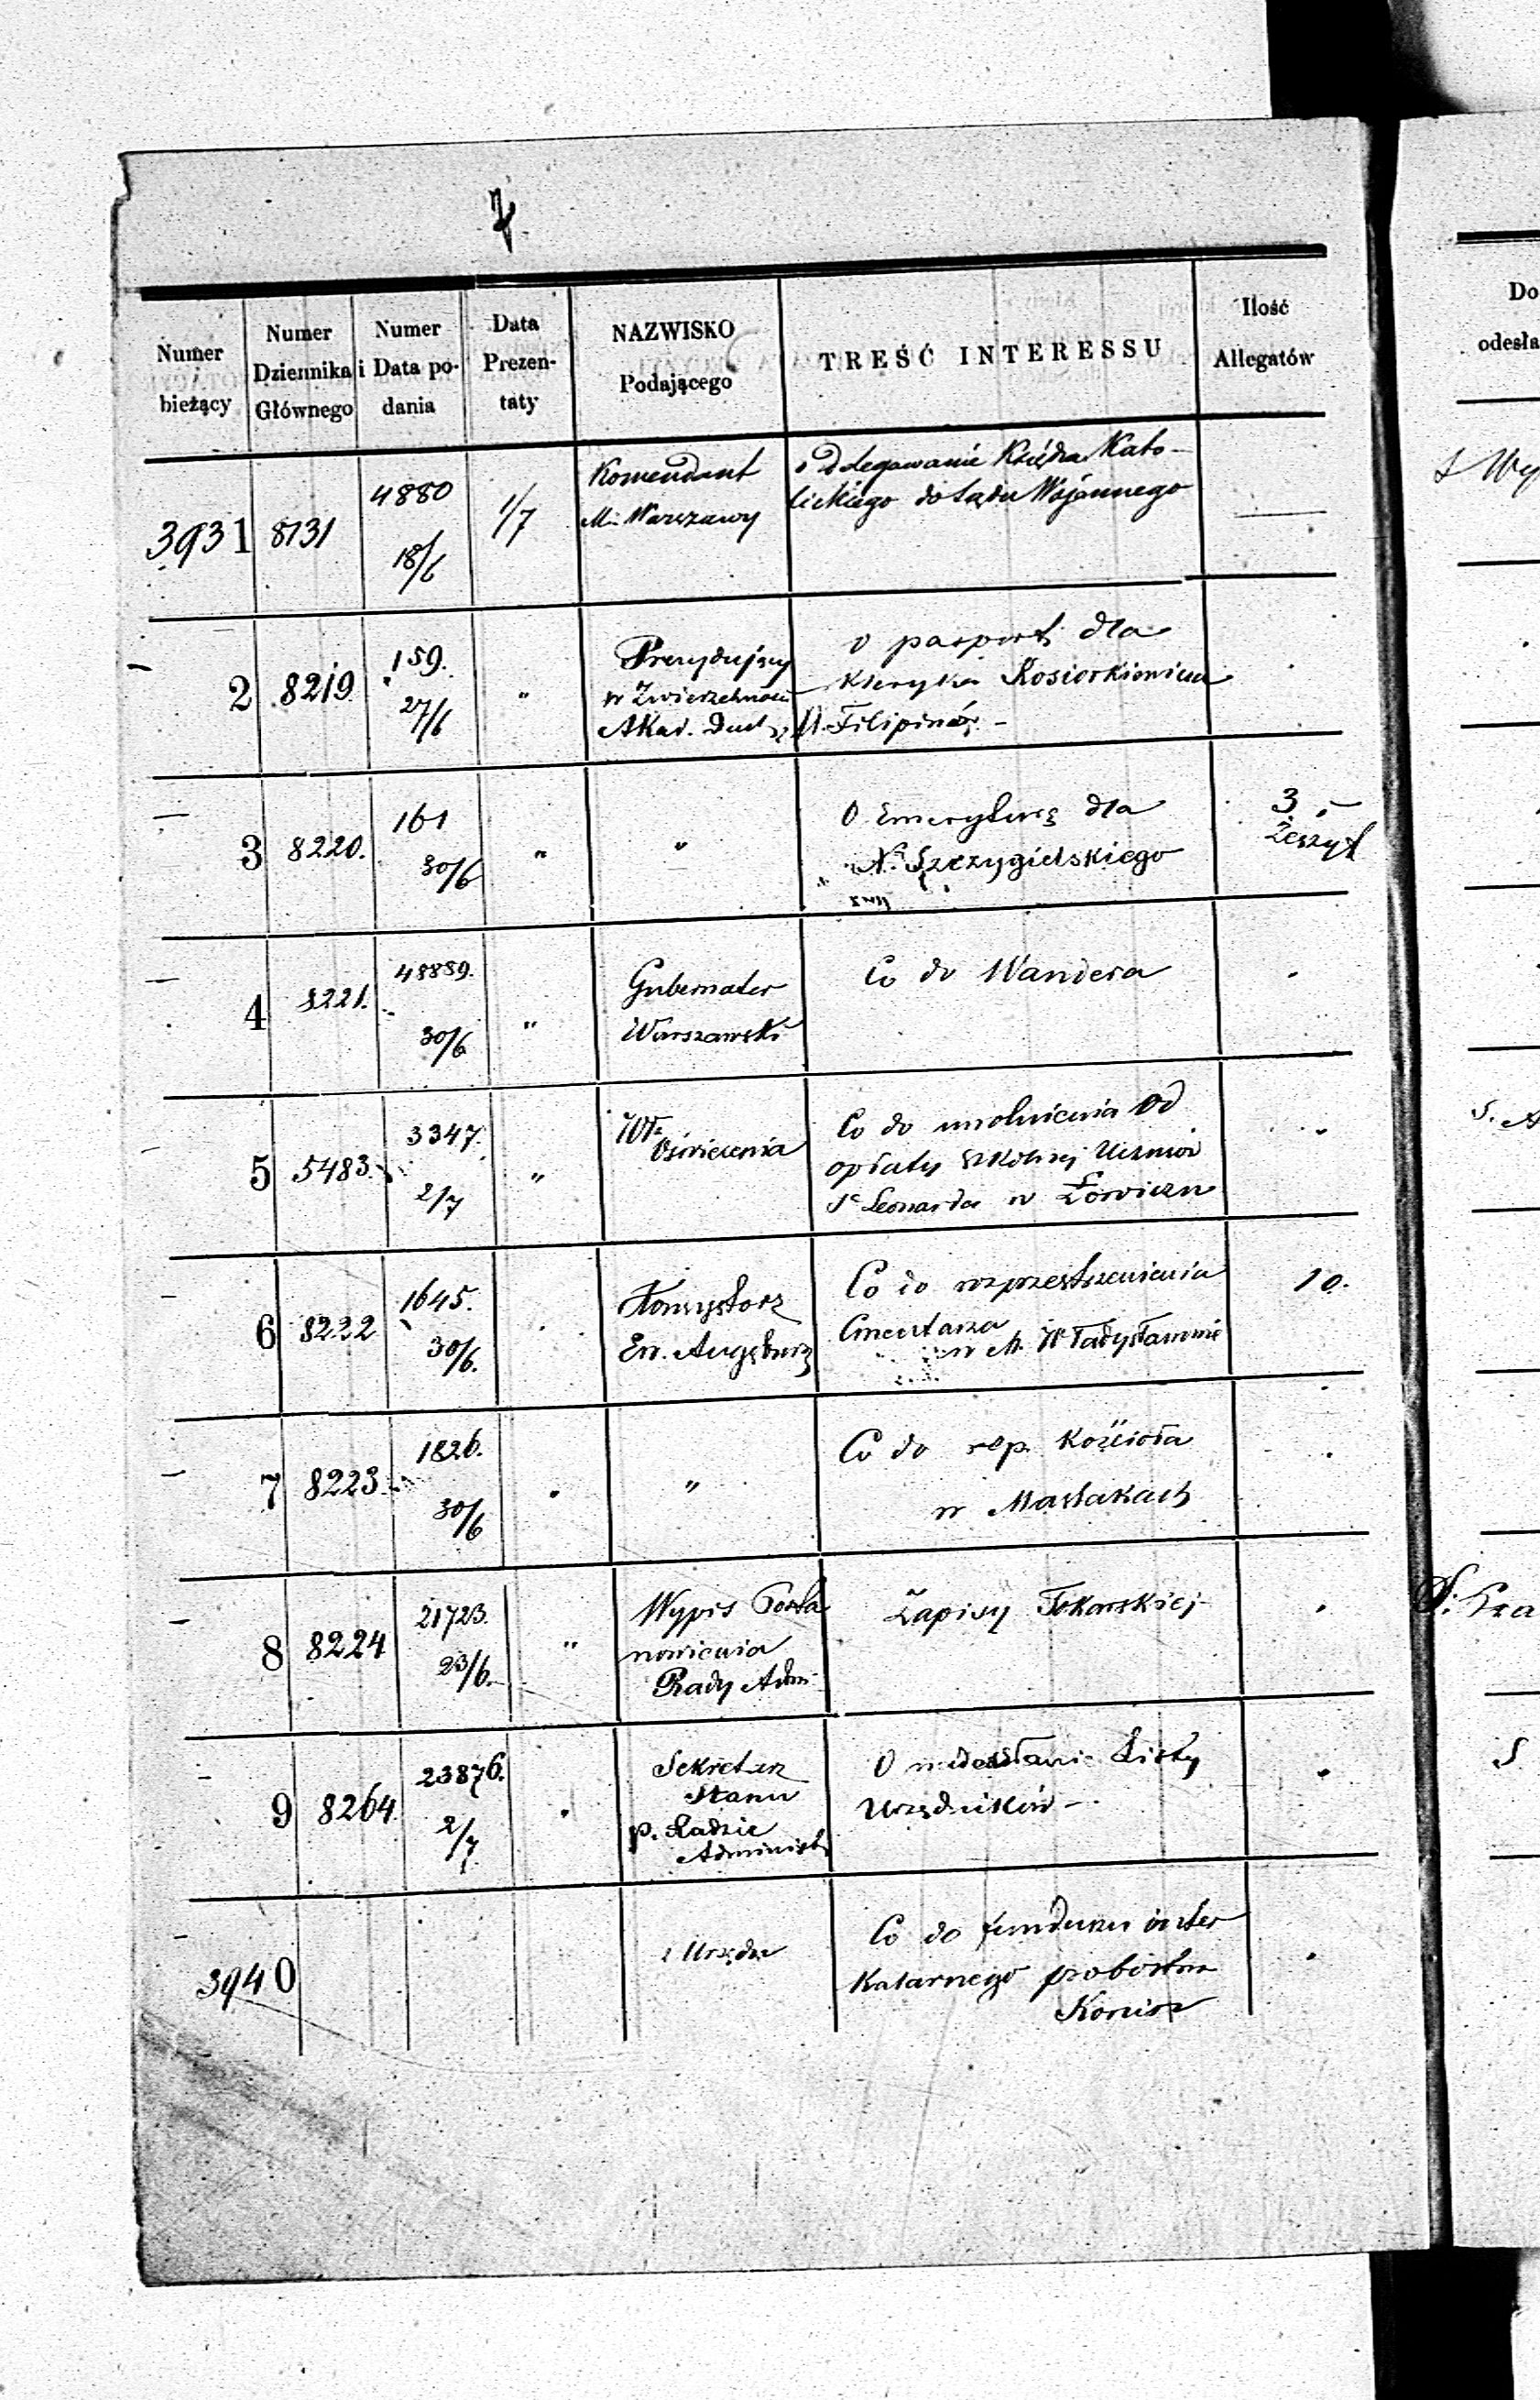 7
Numer bieżący
Numer Dziennika Głównego
Numer i Data podania
Data Prezentaty
NAZWISKO Podającego
TREŚĆ INTERESSU
Ilość Allegatów
Do
odesła
3931 8131 4880 18/6 1/7
Komendant
M. Warszawy
o Delegowanie Księdza Kato-
lickiego do Sądu Wojennego
2 8219. 159. 27/6 "
Prezydujący
w Zwierzchności
Akad. Duch
o pasport dla
Kleryka Kosiorkiewicza
Filipinów -
3 8220. 161 30/6 " "
O Emeryturę dla
Szczygielskiego
3
Zeszyt
4 8221. 48889. 30/6 "
Gubernator
Warszawski
Co do Wandera
5 5483 3347. 2/7 "
Oświecenia
Co do uwolnienia od
opłaty szkolnej Uczniów
Sc Leonarda w Łowiczu
6 8222 1645. 30/6.
Konsystorz
Ew. Augsburg
Co do rozprzestrzenienia
Cmentarza
w M. Władysławowie
10.
7 8223 1826. 30/6 "
Co do rep. Kościoła
w Maslakach
8 8224 21723. 23/6. "
Wypis Posta
nowienia
Rady Adm
Zapisy Tokarskiej
9 8264 23876. 2/7
Sekretarz
Stanu
p. Radzie
Administ
O nadesłanie Listy
Urzędników -
3940
z Urzędu
Co do funduszu inter
Kalarnego probostwa